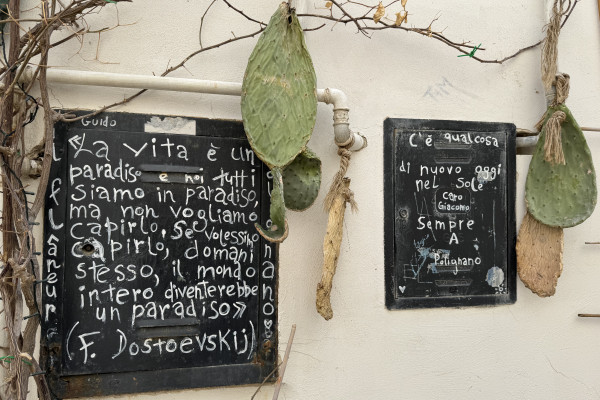 Guido
«La vita è un
paradiso e noi tutti
siamo in paradiso,
ma non vogliamo
capirlo. Se volessimo
capirlo, domani
stesso, il mondo
intero diventerebbe
un paradiso»
(F. Dostoevskij)
il flaneur
C'è qualcosa
di nuovo oggi
nel Sole
Ciro
Giacomo
Sempre
A
Polignano